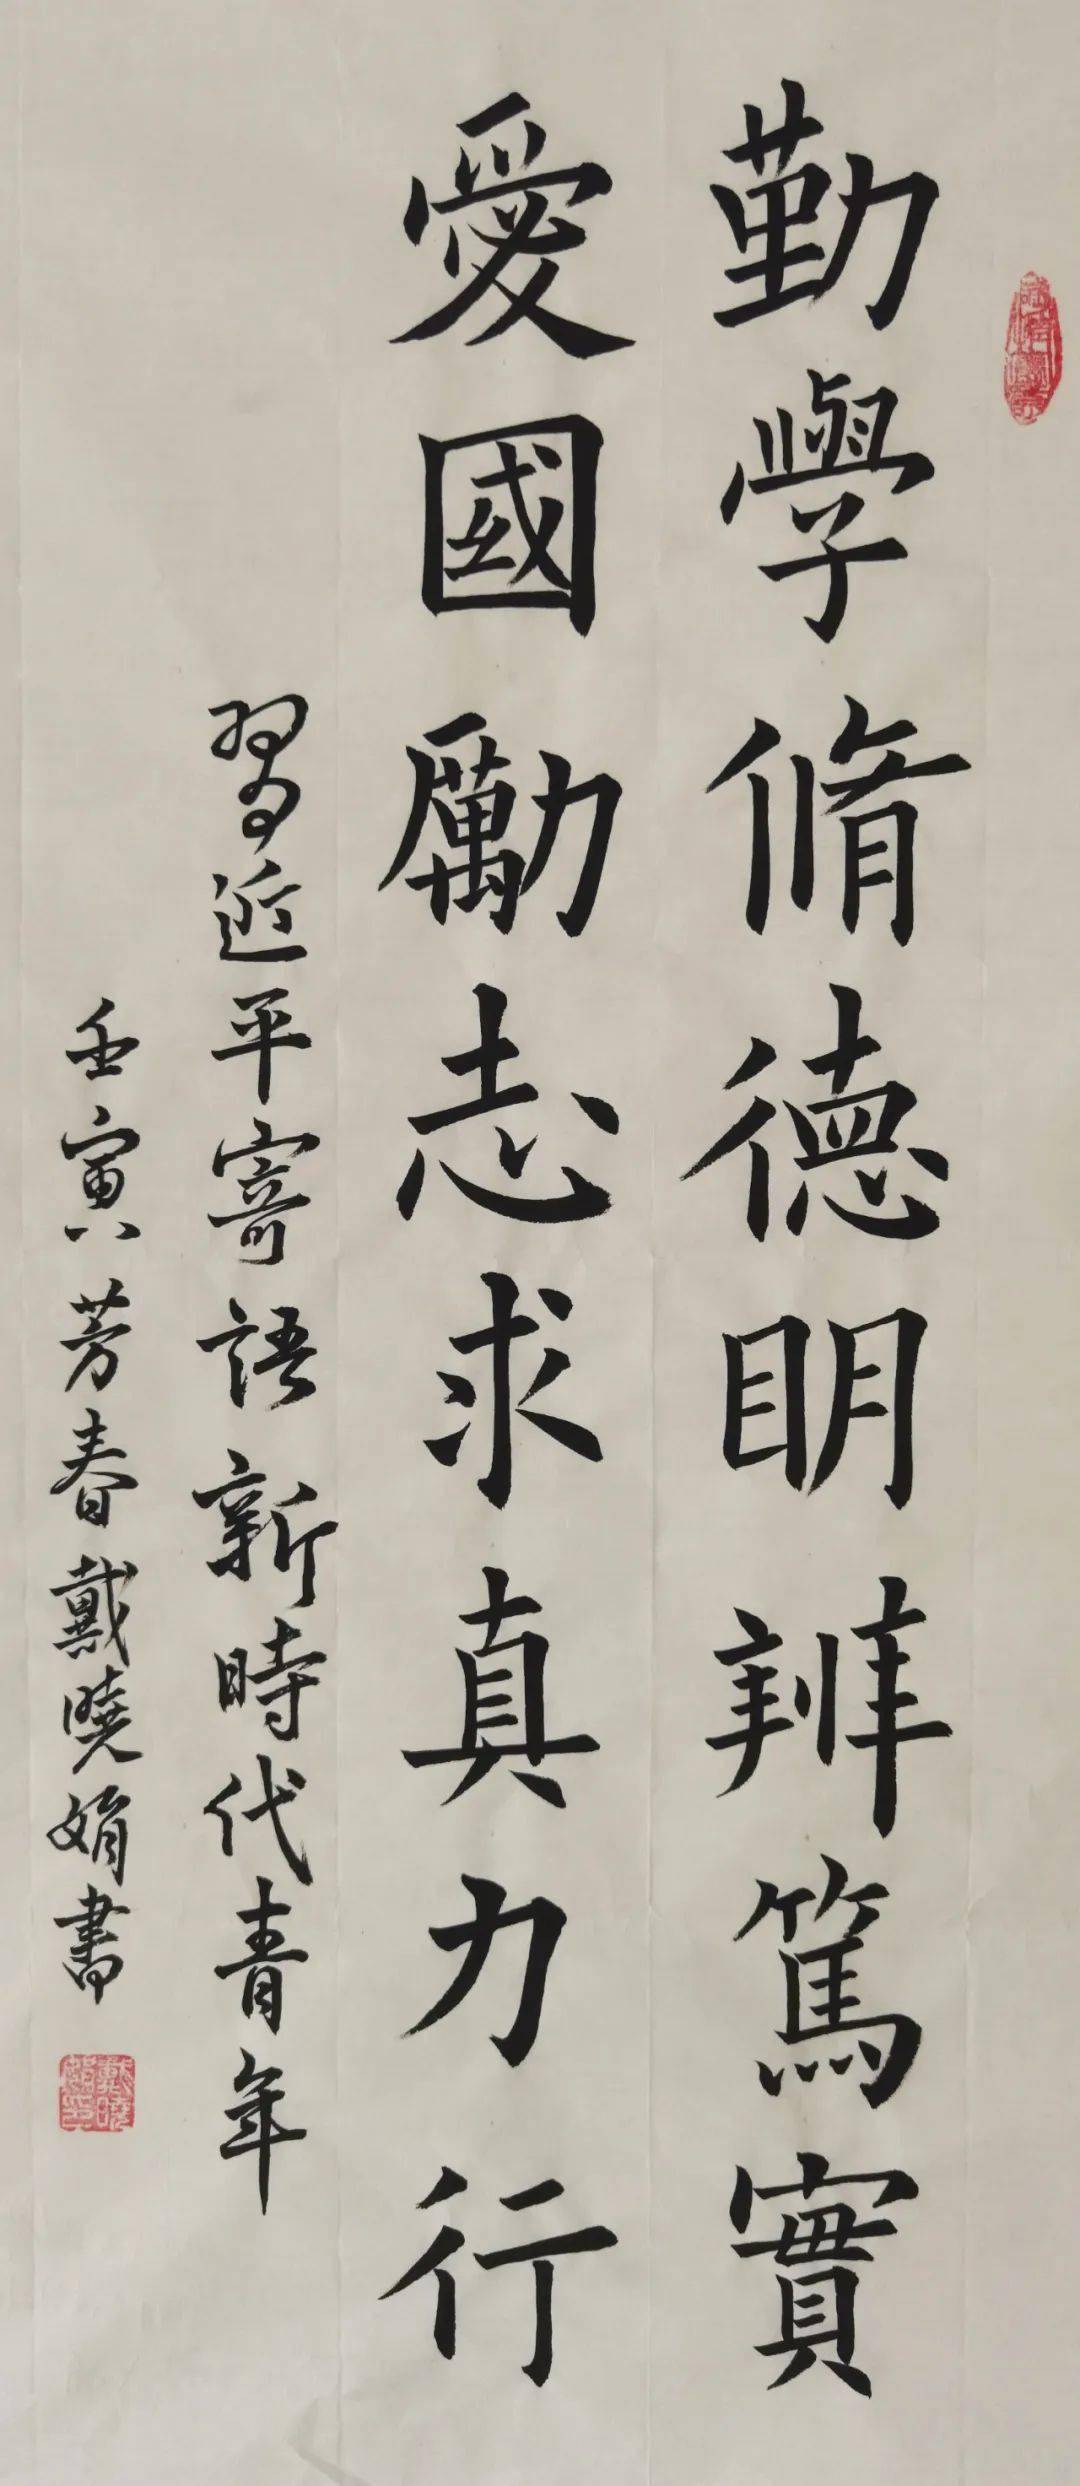 勤學脩德明辨篤實
愛國勵志求真力行
習近平寄語新時代青年
壬寅芳春戴曉娟書